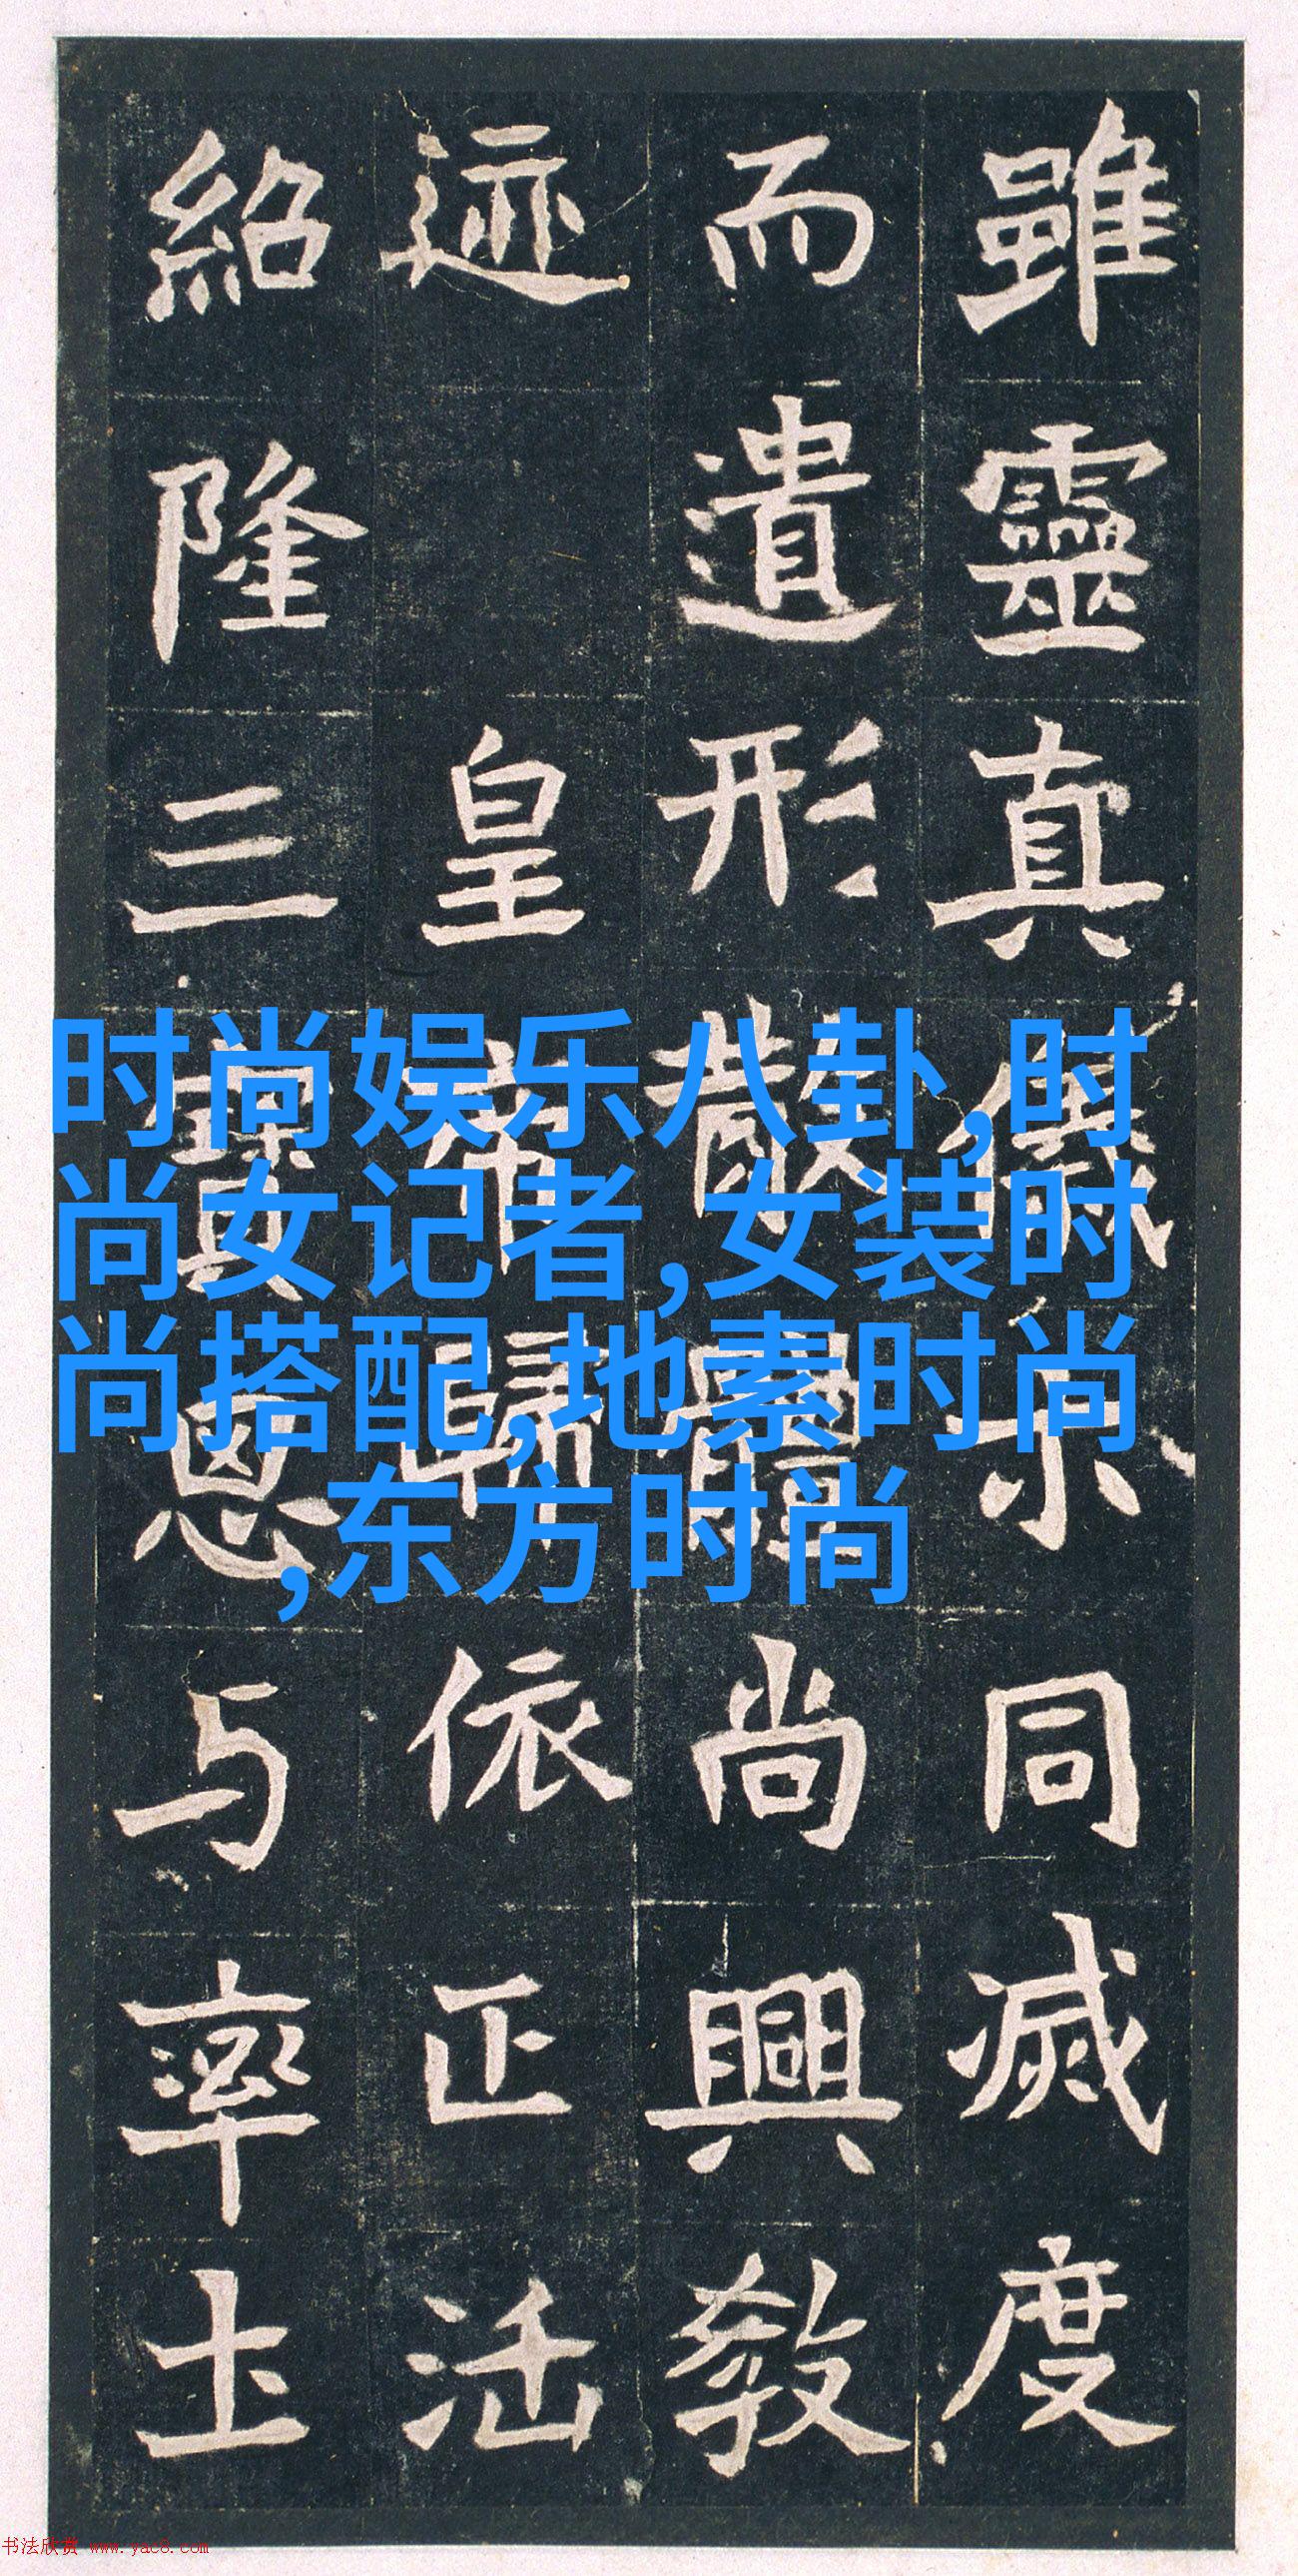 雖靈真儀示同滅度
而遺形散體尚興教
迹 皇帝歸依正法
紹隆三寶恩与率土
时尚娱乐八卦,时
尚女记者,女装时
尚搭配,地素时尚
,东方时尚
书法欣赏 www.yac8.com